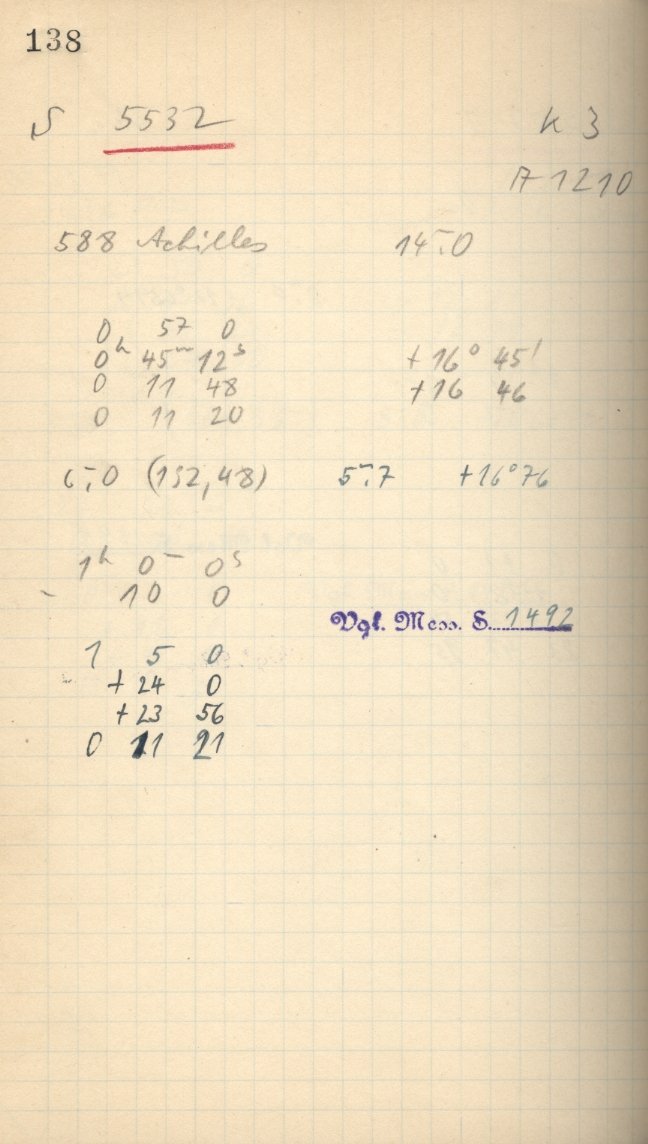 138
S 5532 K 3
A 1210
588 Achilles 14m.0
0 57 0
0h 45m 12s +16° 45'
0 11 48 +16 46
0 11 20
6m.0 (152,48) 5m.7 +16°76
1h 0m 0s
- 10 0
Vgl. Mess. S. 1492
1 5 0
+24 0
+23 56
0 11 21